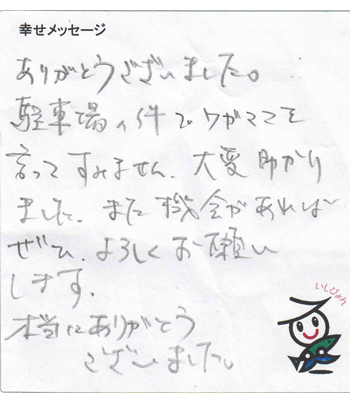 幸せメッセージ
ありがとうございました。
駐車場の件でワガママを
言ってすみません。大変助かり
ました。また機会があれば
ぜひ、よろしくお願い
します。
本当にありがとう
ございました。
いしぴょん